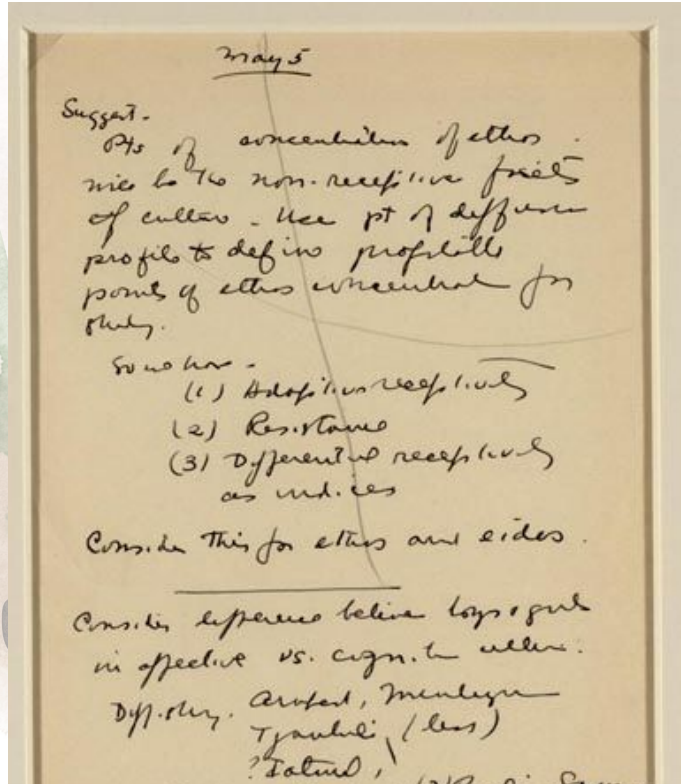 May 5
Suggest -
Pts of concentration of ethos
the non-receptive facets
of culture - Use pt of diffusion
profile to define profitable
points of ethos concentration for
study.
Somehow -
(1) Adoptive receptivity
(2) Resistance
(3) Differential receptivity
as indices
Consider this for ethos and eidos.
Consider difference between boys & girls
in affective vs. cognitive culture.
Diff. Arapesh, Mundugumor
Tjambuli, (less)
? Iatmul,